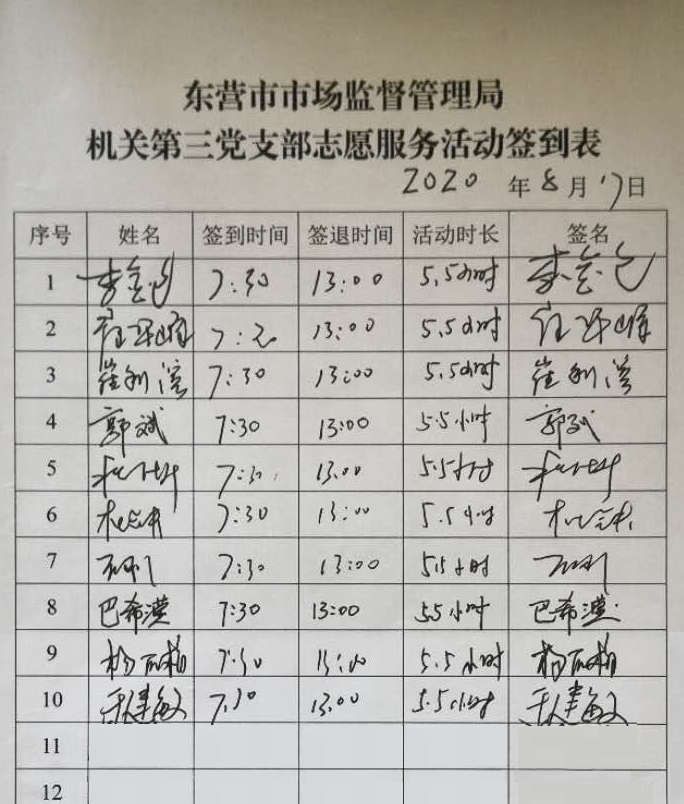 东营市市场监督管理局
机关第三党支部志愿服务活动签到表
2020 年 8 月 17 日
序号 姓名 签到时间 签退时间 活动时长 签名
1 7:30 13:00 5.5小时
2 7:30 13:00 5.5小时
3 崔利滨 7:30 13:00 5.5小时 崔利滨
4 郭斌 7:30 13:00 5.5小时 郭斌
5 7:30 13:00 5.5小时
6 7:30 13:00 5.5小时
7 7:30 13:00 5.5小时
8 巴希漢 7:30 13:00 5.5小时 巴希漢
9 7:30 13:00 5.5小时
10 建敏 7:30 13:00 5.5小时 建敏
11
12